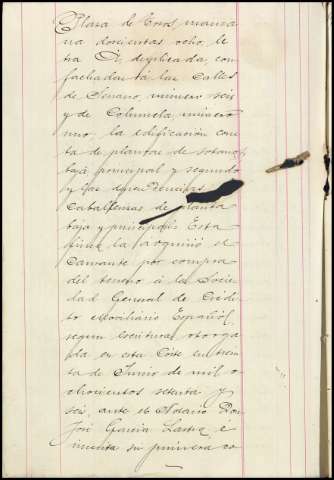 Plaza de Toros manza
na doscientas ocho, le
tra D, duplicada, con
fachadas á las Calles
de Serrano número seis
y de Columela número
uno, la edificación cons
ta de plantas de sotanos,
baja principal y segundo
y las dependencias
Caballerizas de planta
baja y principales Esta
finca la adquirió el
Causante por compra
del terreno á la Socie
dad General de Crédi
to Moviliario Español,
segun escritura otorga
da en esta Corte en trein
ta de Junio de mil o
chocientos setenta y
seis, ante el Notario Don
José Garcia Lastra é
inscrita su primera co